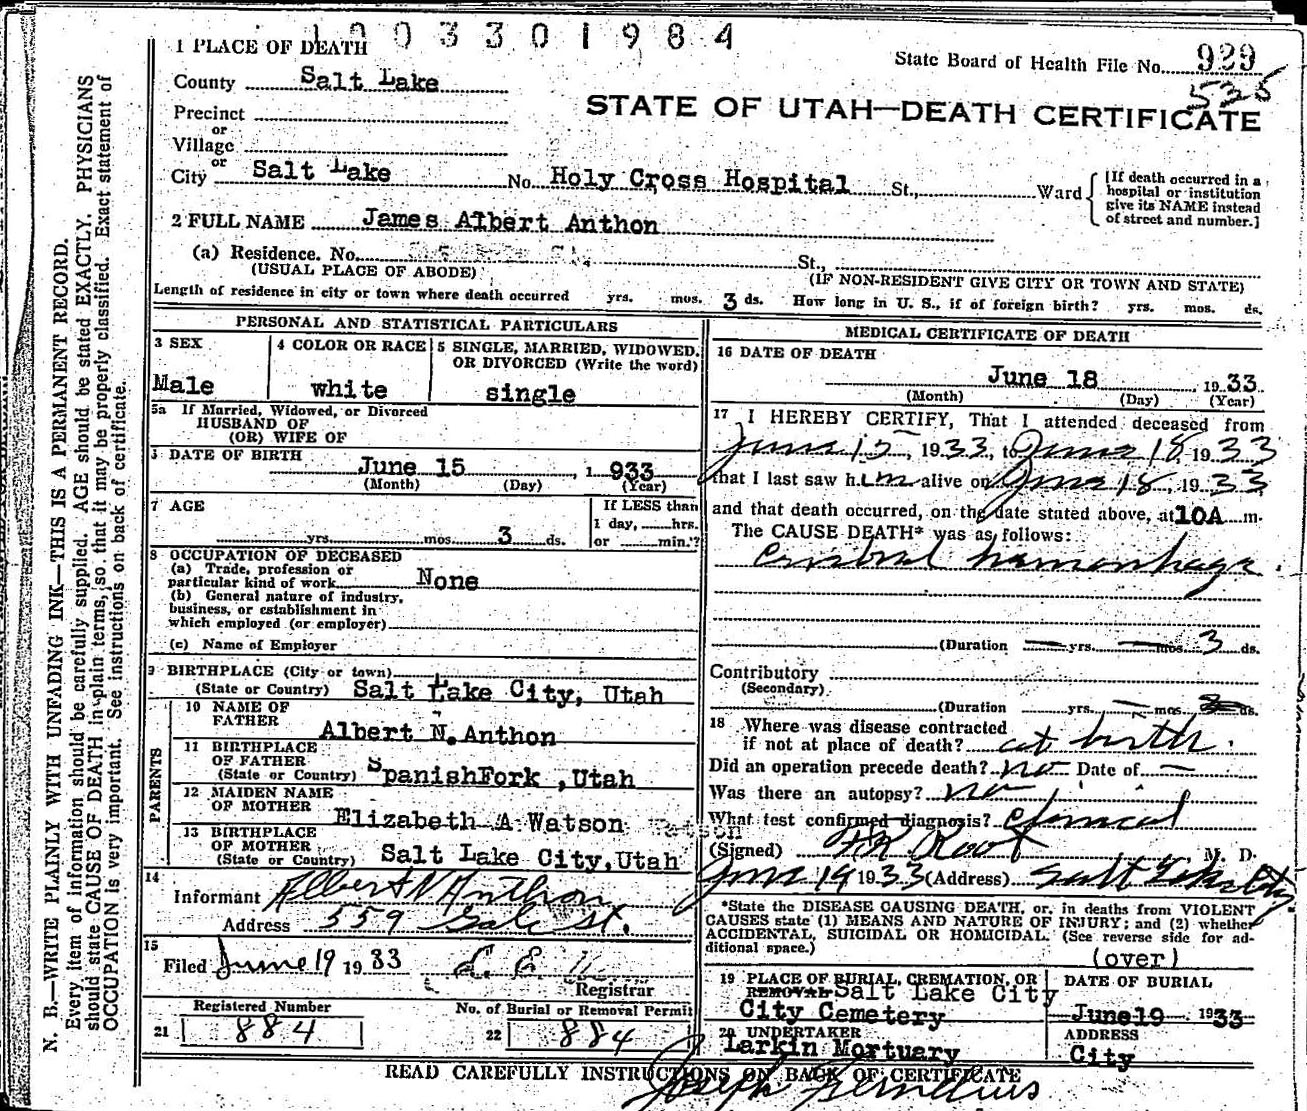 1003301984
1 PLACE OF DEATH
State Board of Health File No. 929
535
County Salt Lake
STATE OF UTAH—DEATH CERTIFICATE
Precinct
or
Village
or
City Salt Lake No. Holy Cross Hospital St., Ward
[If death occurred in a hospital or institution give its NAME instead of street and number.]
2 FULL NAME James Albert Anthon
(a) Residence. No. St.,
(USUAL PLACE OF ABODE) (IF NON-RESIDENT GIVE CITY OR TOWN AND STATE)
Length of residence in city or town where death occurred yrs. mos. 3 ds. How long in U. S., if of foreign birth? yrs. mos. ds.
PERSONAL AND STATISTICAL PARTICULARS
3 SEX
Male
4 COLOR OR RACE
white
5 SINGLE, MARRIED, WIDOWED,
OR DIVORCED (Write the word)
single
5a If Married, Widowed, or Divorced
HUSBAND OF
(OR) WIFE OF
DATE OF BIRTH
June 15, 1933
(Month) (Day) (Year)
7 AGE
yrs. mos. 3 ds.
If LESS than
1 day, hrs.
or min.?
8 OCCUPATION OF DECEASED
(a) Trade, profession or
particular kind of work None
(b) General nature of industry,
business, or establishment in
which employed (or employer)
(c) Name of Employer
9 BIRTHPLACE (City or town)
(State or Country) Salt Lake City, Utah
PARENTS
10 NAME OF
FATHER
Albert N. Anthon
11 BIRTHPLACE
OF FATHER
(State or Country) SpanishFork ,Utah
12 MAIDEN NAME
OF MOTHER
Elizabeth A Watson
Watson
13 BIRTHPLACE
OF MOTHER
(State or Country) Salt Lake City,Utah
14
Informant Albert N Anthon
Address 559 Gale St.
15
Filed June 19 1933
L. E.
Registrar
Registered Number
21 884
No. of Burial or Removal Permit
22 884
MEDICAL CERTIFICATE OF DEATH
16 DATE OF DEATH
June 18, 1933
(Month) (Day) (Year)
17 I HEREBY CERTIFY, That I attended deceased from
June 15, 1933, to June 18, 1933
that I last saw him alive on June 18, 1933
and that death occurred, on the date stated above, at 10A m.
The CAUSE DEATH* was as follows:
Cerebral hemorrhage.
(Duration — yrs. — mos. 3 ds.
Contributory
(Secondary)
(Duration yrs. — mos. ds.
18 Where was disease contracted
if not at place of death? at birth.
Did an operation precede death? no Date of —
Was there an autopsy? no
What test confirmed diagnosis? Clinical
(Signed) F K Root M. D.
June 19 1933 (Address) Salt Lake City
*State the DISEASE CAUSING DEATH, or, in deaths from VIOLENT
CAUSES state (1) MEANS AND NATURE OF INJURY; and (2) whether
ACCIDENTAL, SUICIDAL OR HOMICIDAL. (See reverse side for ad-
ditional space.)
(over)
19 PLACE OF BURIAL, CREMATION, OR
REMOVAL Salt Lake City
City Cemetery
DATE OF BURIAL
June19 1933
20 UNDERTAKER
Larkin Mortuary
ADDRESS
City
READ CAREFULLY INSTRUCTIONS ON BACK OF CERTIFICATE
Joseph
N. B.—WRITE PLAINLY WITH UNFADING INK—THIS IS A PERMANENT RECORD.
Every item of information should be carefully supplied. AGE should be stated EXACTLY. PHYSICIANS
should state CAUSE OF DEATH in plain terms, so that it may be properly classified. Exact statement of
OCCUPATION is very important. See instructions on back of certificate.